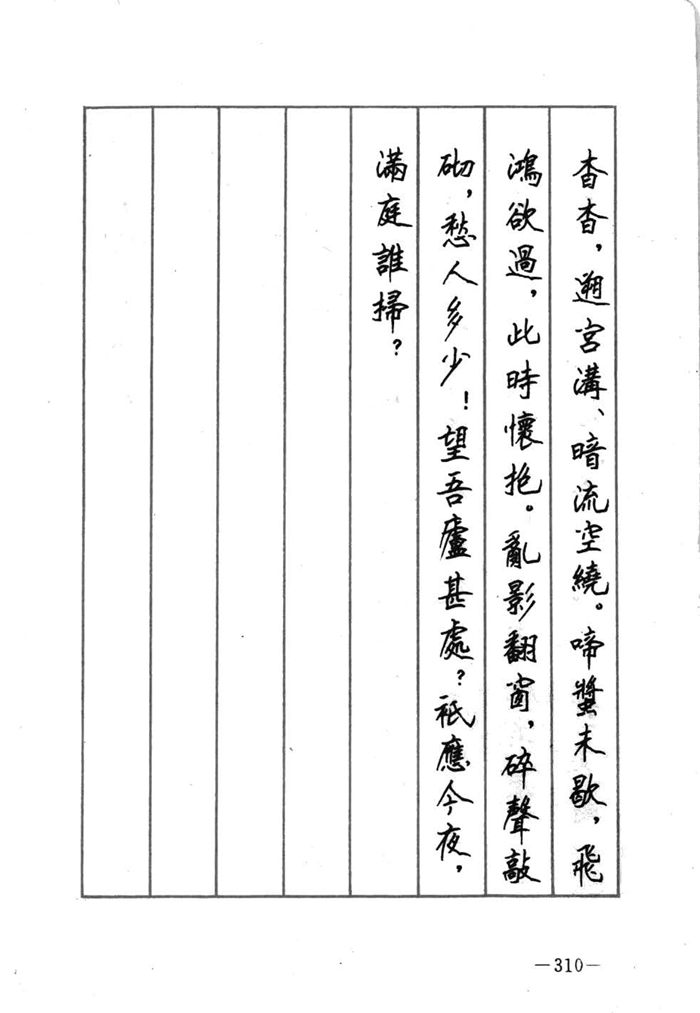 杳杳，遡宮溝、暗流空繞。啼螿未歇，飛
鴻欲過，此時懷抱。亂影翻窗，碎聲敲
砌，愁人多少！望吾廬甚處？祇應今夜，
滿庭誰掃？
—310—